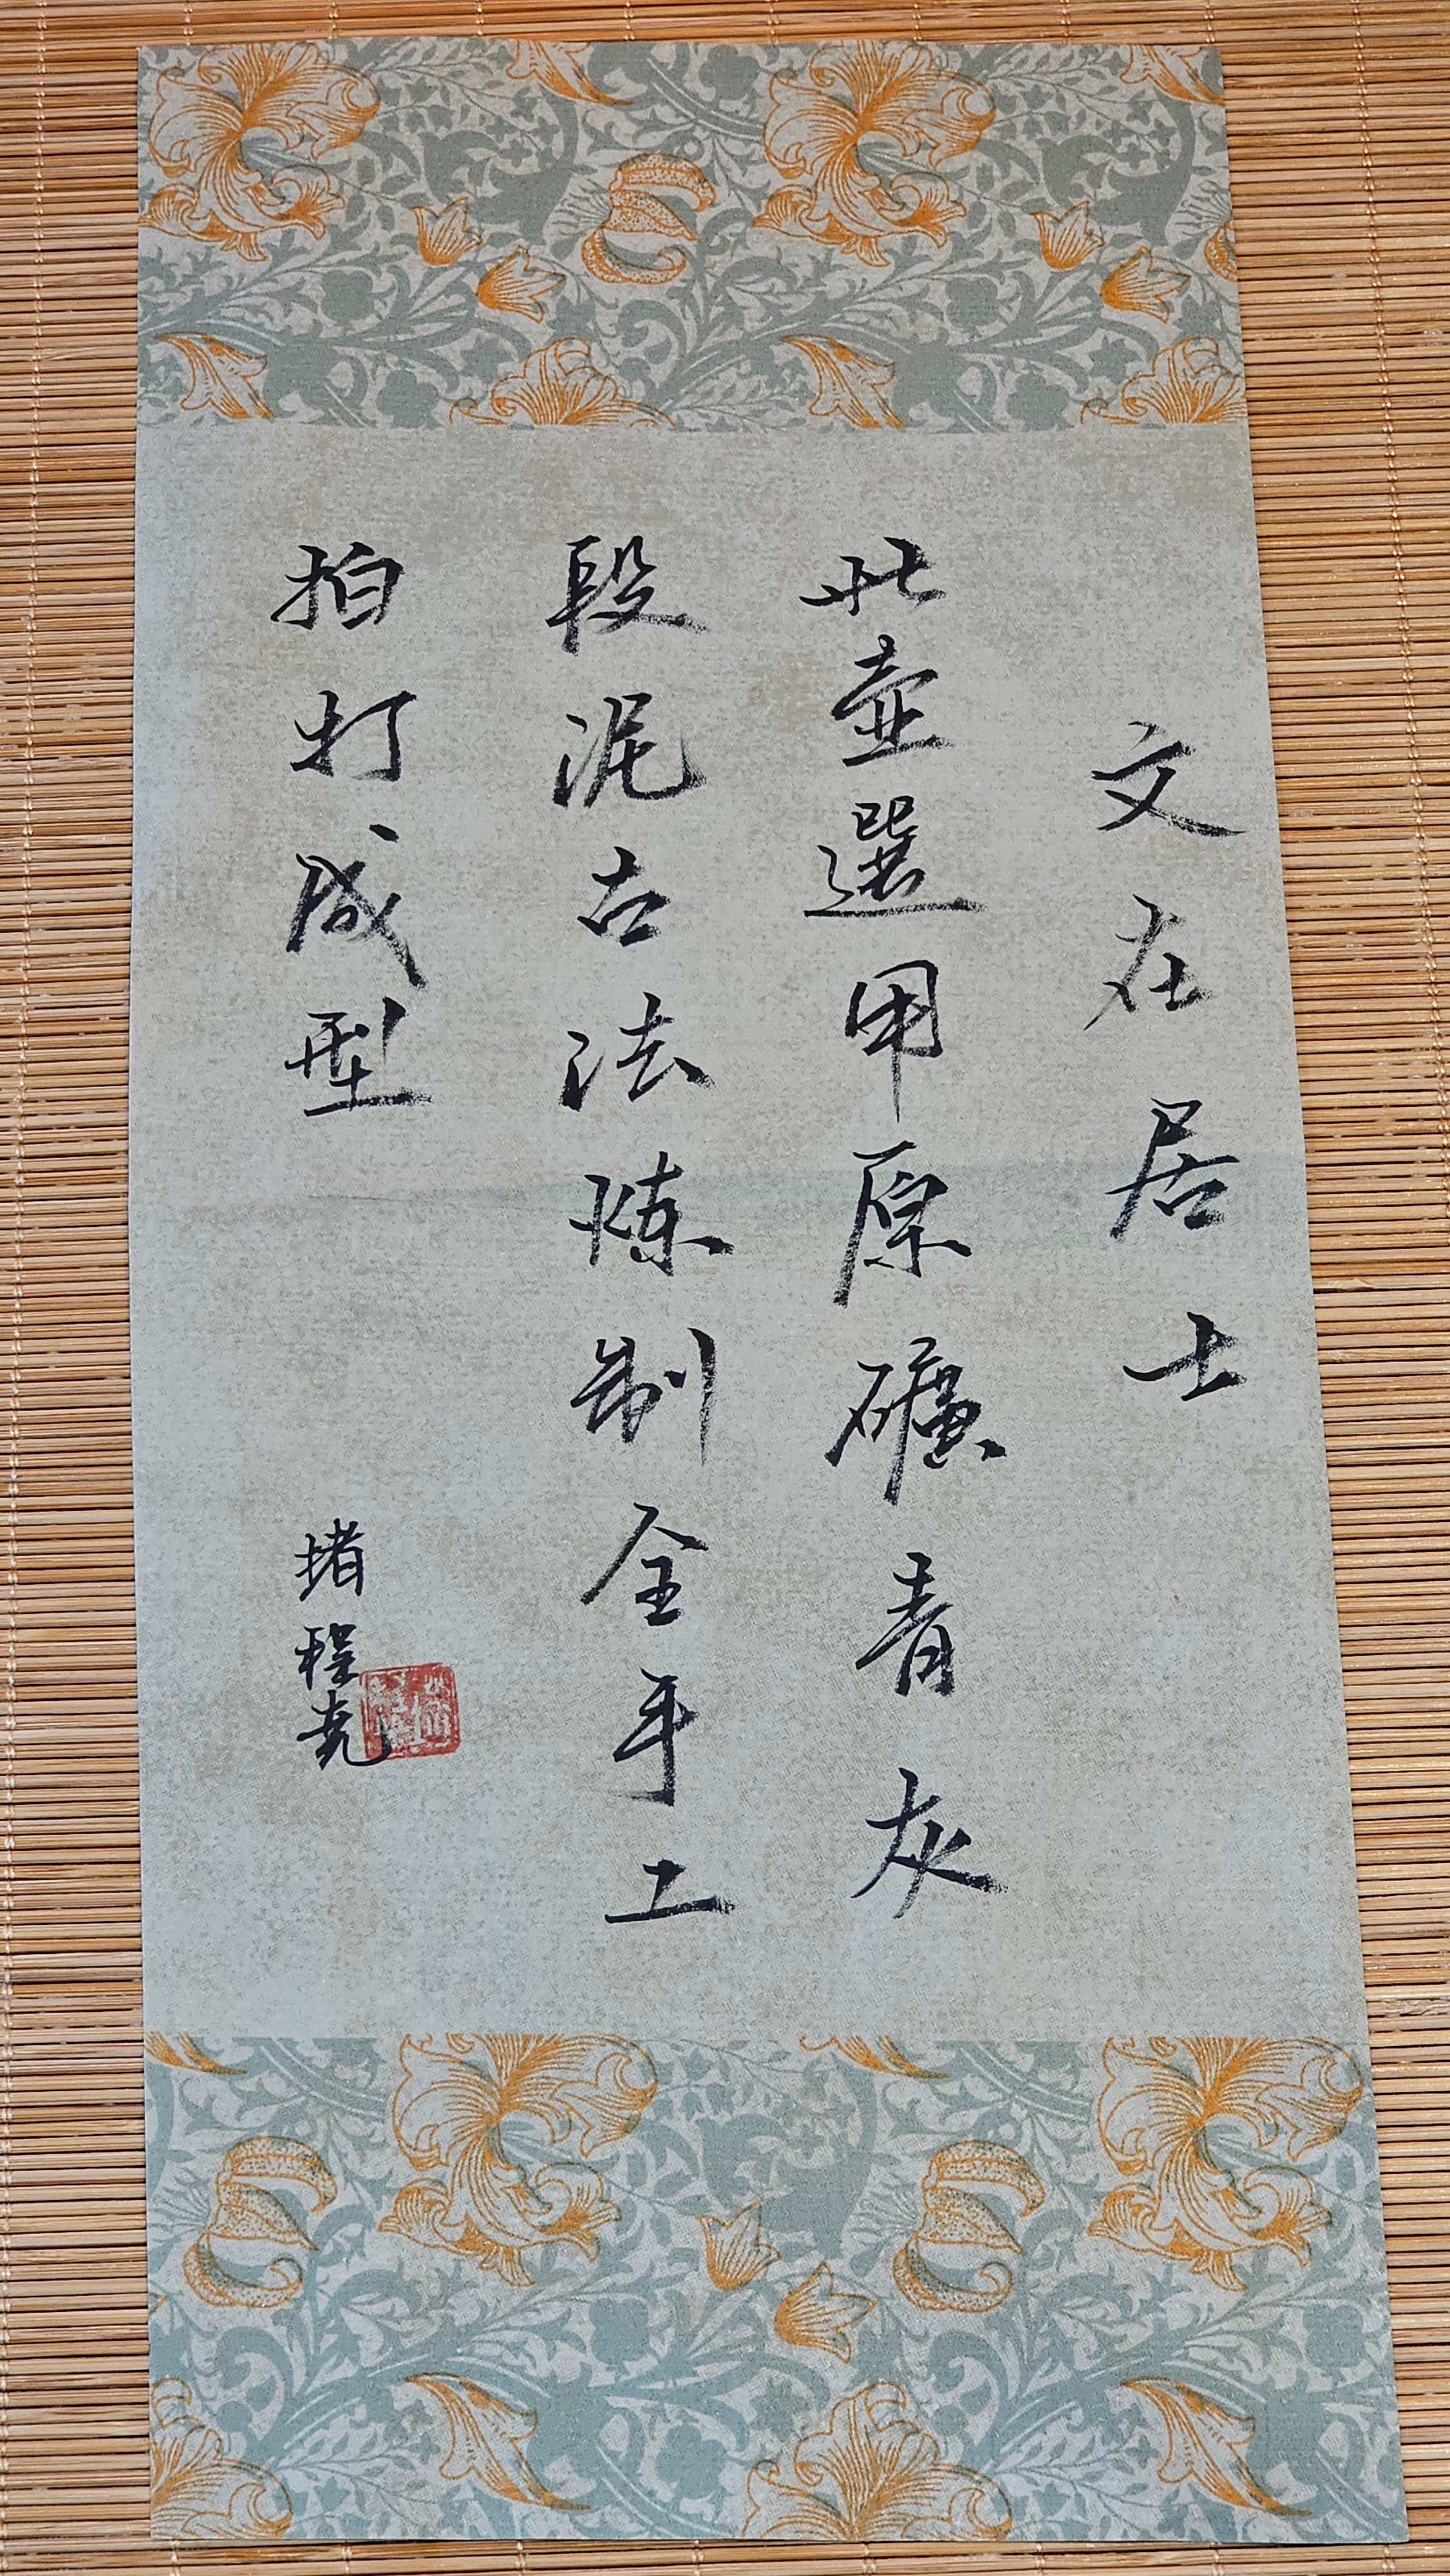 文在居士
此壶選用原礦青灰
段泥古法陈制全手工
拍打成型
堵程尧